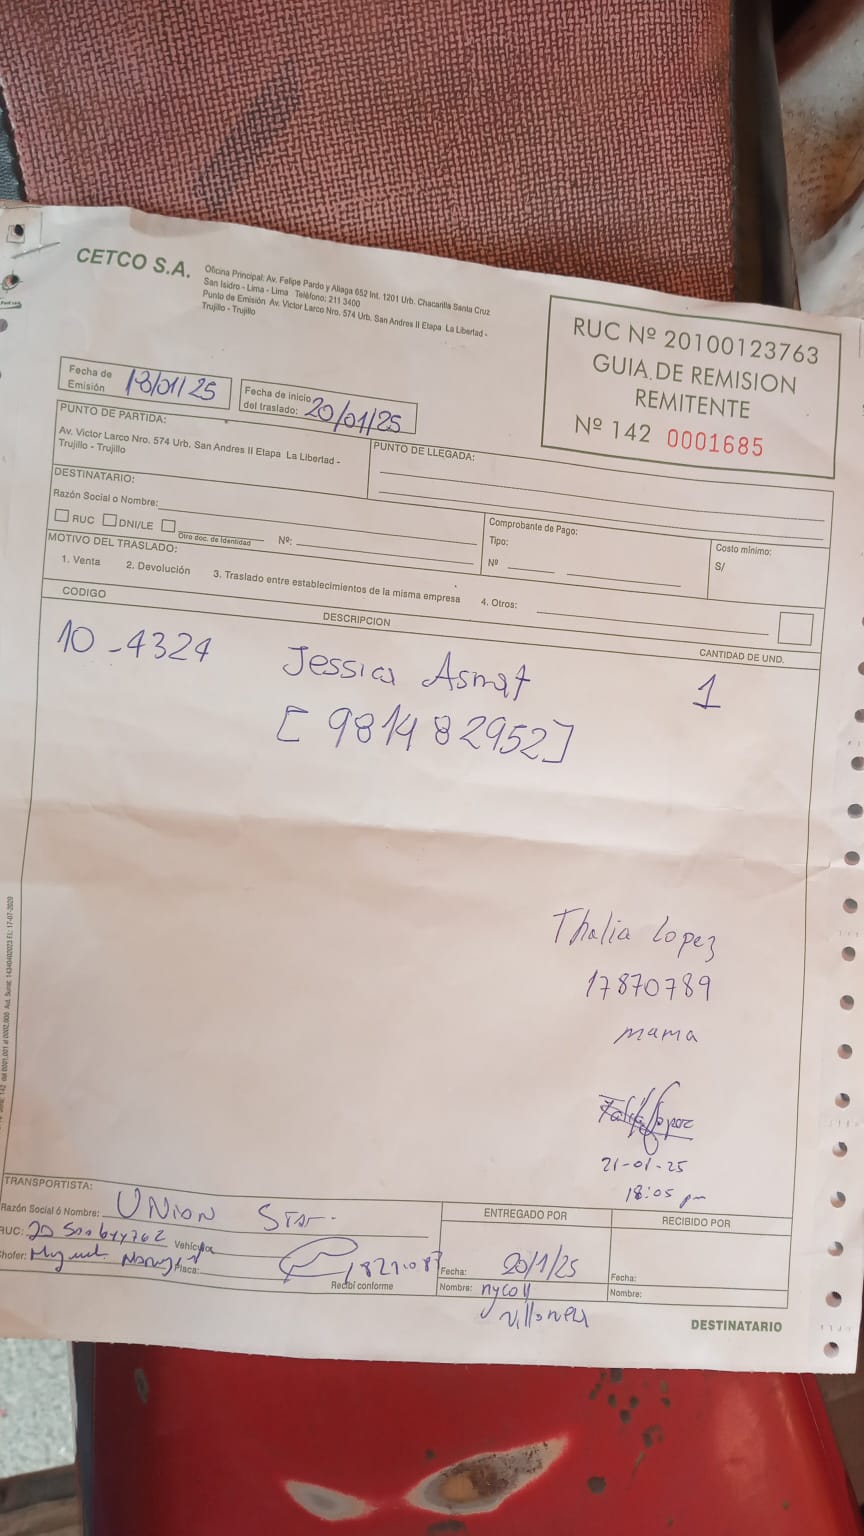 CETCO S.A.
Oficina Principal: Av. Felipe Pardo y Aliaga 652 Int. 1201 Urb. Chacarilla Santa Cruz
San Isidro - Lima - Lima Teléfono: 211 3400
Punto de Emisión Av. Victor Larco Nro. 574 Urb. San Andres II Etapa La Libertad -
Trujillo - Trujillo
RUC Nº 20100123763
GUIA DE REMISION
REMITENTE
Nº 142 0001685
Fecha de
Emisión
/01/25
Fecha de inicio
del traslado: 20/01/25
PUNTO DE PARTIDA:
Av. Victor Larco Nro. 574 Urb. San Andres II Etapa La Libertad -
Trujillo - Trujillo
PUNTO DE LLEGADA:
DESTINATARIO:
Razón Social o Nombre:
RUC DNI/LE Otro doc. de Identidad Nº:
Comprobante de Pago:
Tipo:
Nº
Costo mínimo:
S/
MOTIVO DEL TRASLADO:
1. Venta 2. Devolución 3. Traslado entre establecimientos de la misma empresa 4. Otros:
CODIGO DESCRIPCION CANTIDAD DE UND.
10-4324 Jessica Asmat 1
[981482952]
Thalia Lopez
17870789
mama
21-01-25
18:05 pm
TRANSPORTISTA:
Razón Social ó Nombre: UNION Star
RUC: Vehículo
Chofer: Miguel Placa:
Recibí conforme
ENTREGADO POR
Fecha: 20/1/25
Nombre: nycoll
RECIBIDO POR
Fecha:
Nombre:
DESTINATARIO